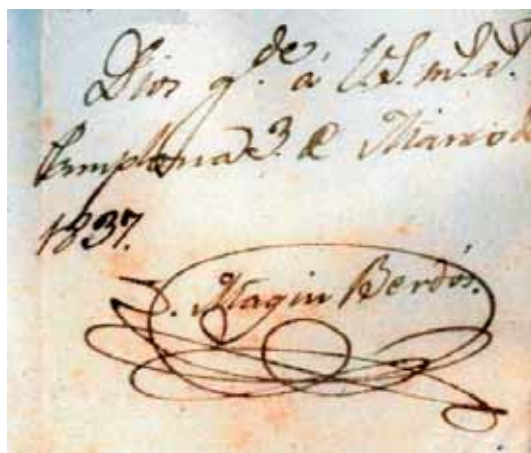 Dios g.de á V.S. m.s a.s
Pamplona 3. de Marzo de
1837.
Magin Berdós.